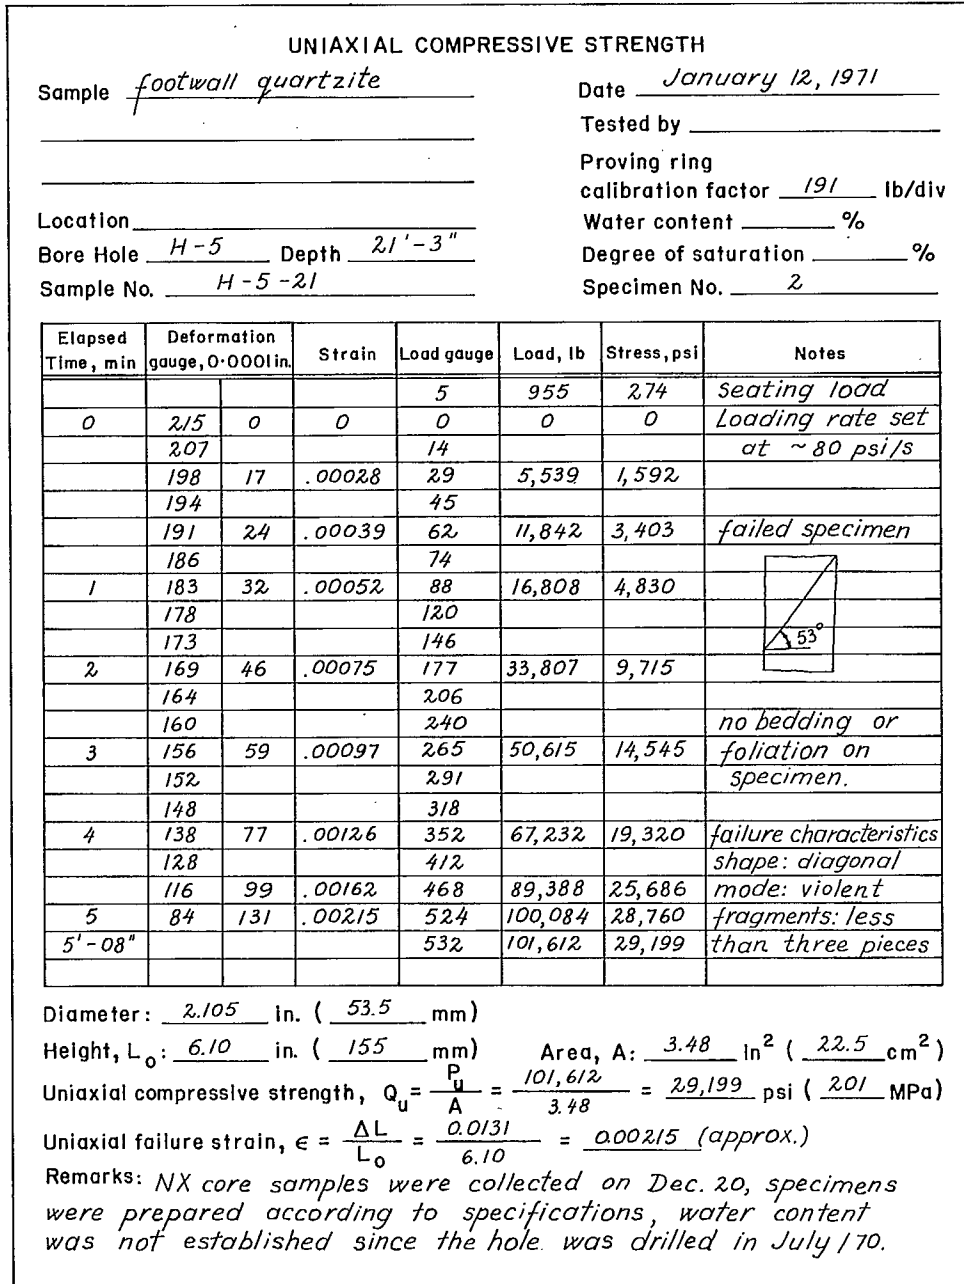 UNIAXIAL COMPRESSIVE STRENGTH
Sample footwall quartzite
Date January 12, 1971
Tested by
Proving ring
calibration factor 191 lb/div
Location
Water content %
Bore Hole H-5 Depth 21'-3"
Degree of saturation %
Sample No. H-5-21
Specimen No. 2
Elapsed Time, min Deformation gauge, 0·0001 in. Strain Load gauge Load, lb Stress, psi Notes
5 955 274 Seating load
0 215 0 0 0 0 0 Loading rate set
207 14 at ~80 psi/s
198 17 .00028 29 5,539 1,592
194 45
191 24 .00039 62 11,842 3,403 failed specimen
186 74
1 183 32 .00052 88 16,808 4,830
178 120
173 146 53°
2 169 46 .00075 177 33,807 9,715
164 206
160 240 no bedding or
3 156 59 .00097 265 50,615 14,545 foliation on
152 291 specimen.
148 318
4 138 77 .00126 352 67,232 19,320 failure characteristics
128 412 shape: diagonal
116 99 .00162 468 89,388 25,686 mode: violent
5 84 131 .00215 524 100,084 28,760 fragments: less
5'-08" 532 101,612 29,199 than three pieces
Diameter: 2.105 in. ( 53.5 mm)
Height, Lo: 6.10 in. ( 155 mm) Area, A: 3.48 in² ( 22.5 cm²)
Uniaxial compressive strength, Qu = Pu / A = 101,612 / 3.48 = 29,199 psi ( 201 MPa)
Uniaxial failure strain, ϵ = ΔL / Lo = 0.0131 / 6.10 = 0.00215 (approx.)
Remarks: NX core samples were collected on Dec. 20, specimens
were prepared according to specifications, water content
was not established since the hole was drilled in July/70.